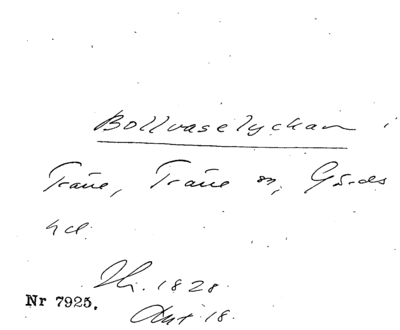 Bollvaselyckan i
Träne, Träne sn, Gärds
hd.
Lh. 1828
Nr 7925.
Akt 18.